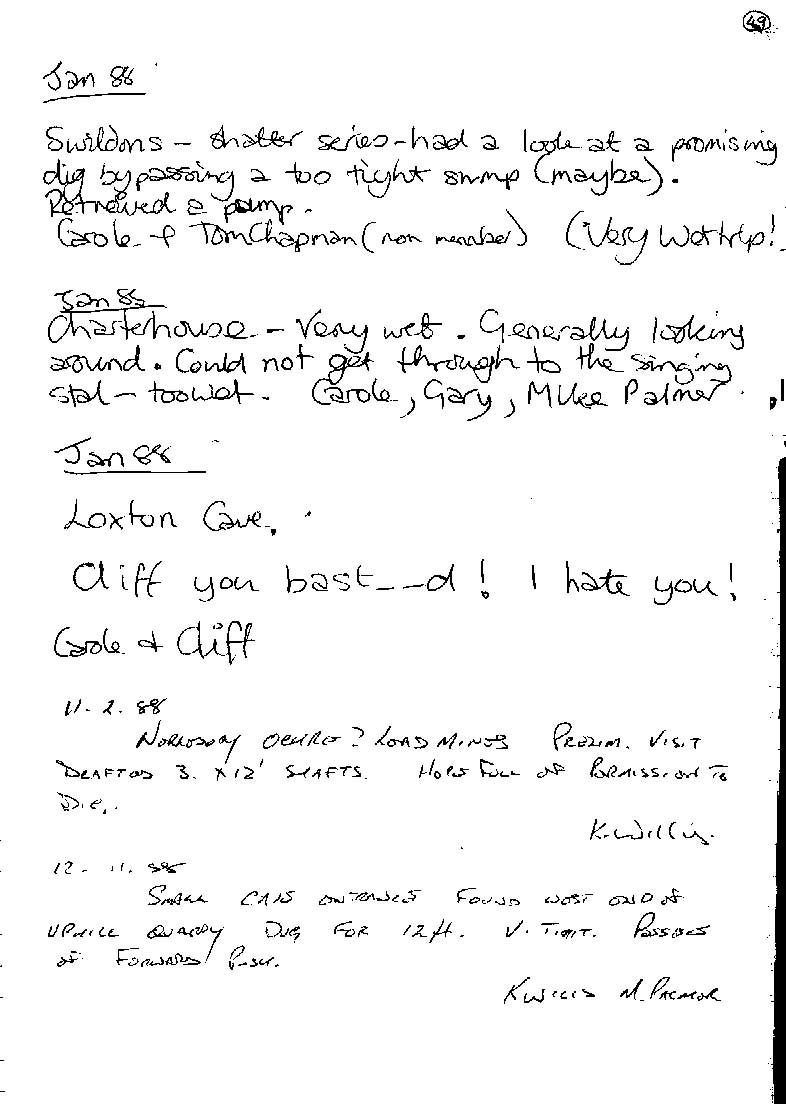 49
Jan 88
Swildons - shatter series - had a look at a promising
dig bypassing a too tight sump (maybe).
Retrieved a pump.
Carole + Tom Chapman (non member) (Very Wet trip!
Jan 88
Charterhouse - Very wet. Generally looking
around. Could not get through to the singing
stal - too wet. Carole, Gary, Mike Palmer.
Jan 88
Loxton Cave.
Cliff you bast---d! I hate you!
Carole + Cliff
11. 2. 88
? Visit
3. x 12' shafts. Hope Full of Permission to
Dig.
K. Willis.
12. 11. 88
Small Cave entrance Found west end of
Uphill Quarry Dug For 12ft. V. Tight.
of Forward
K Willis M. Palmer